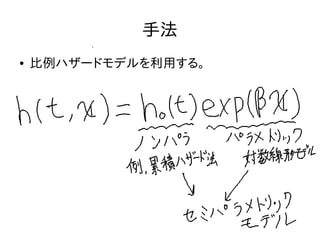 手法
• 比例ハザードモデルを利用する。
h(t,x) = h₀(t)exp(βx)
ノンパラ パラメトリック
例,累積ハザード法 対数線形モデル
セミパラメトリック
モデル